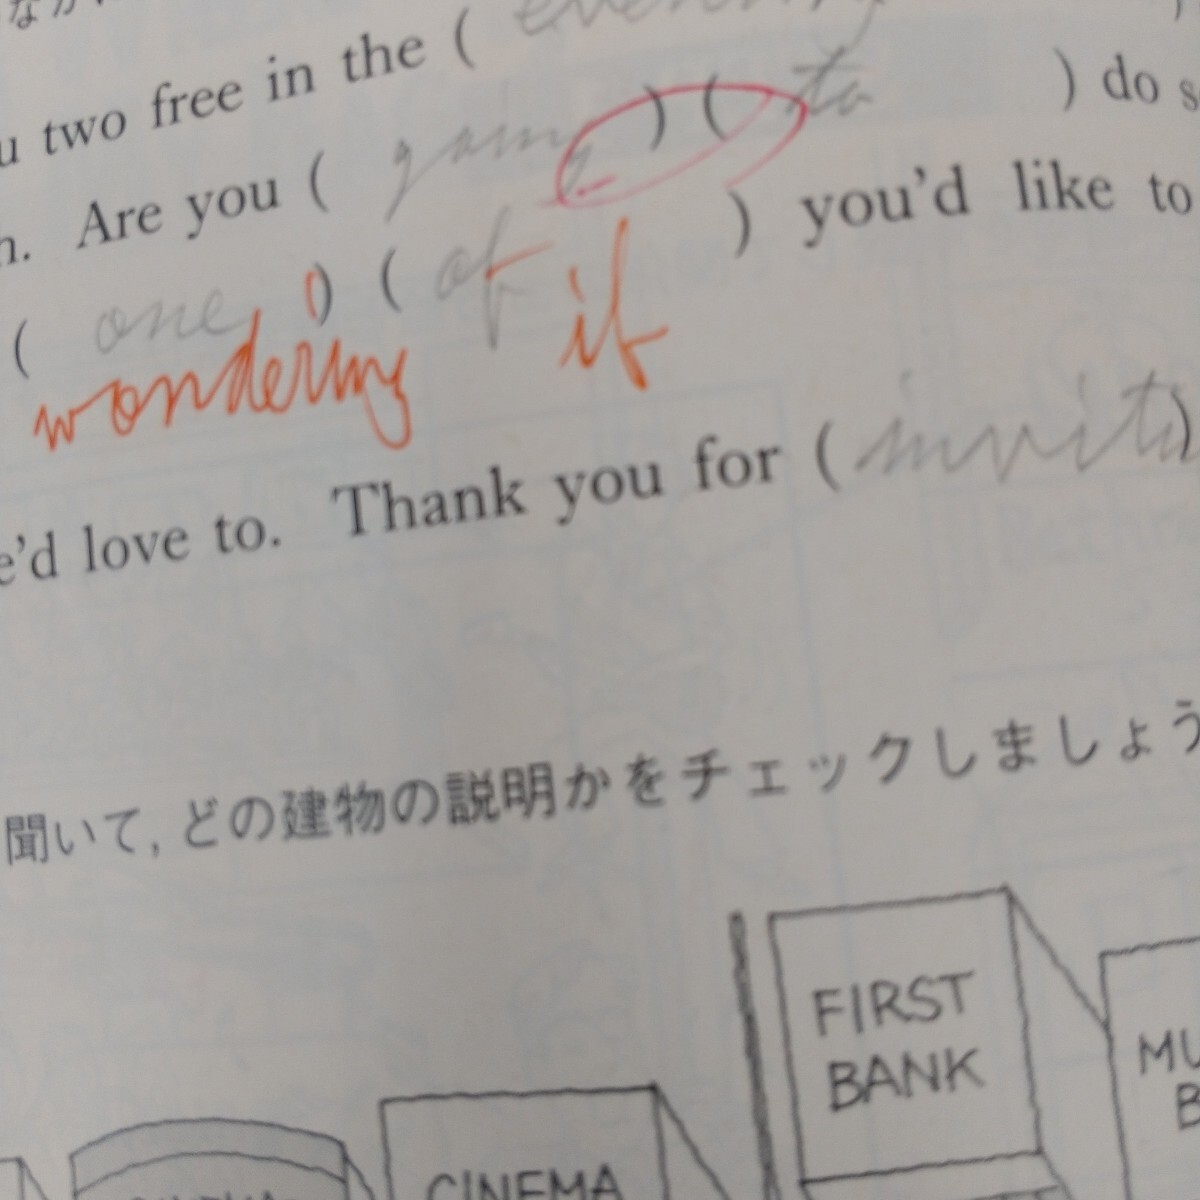 u two free in the ( evening
Are you ( going ) ( to ) do s
( one ) ( of ) you'd like to
wondering if
e'd love to. Thank you for ( invit )
聞いて, どの建物の説明かをチェックしましょう
FIRST
BANK
MU
B
CINEMA